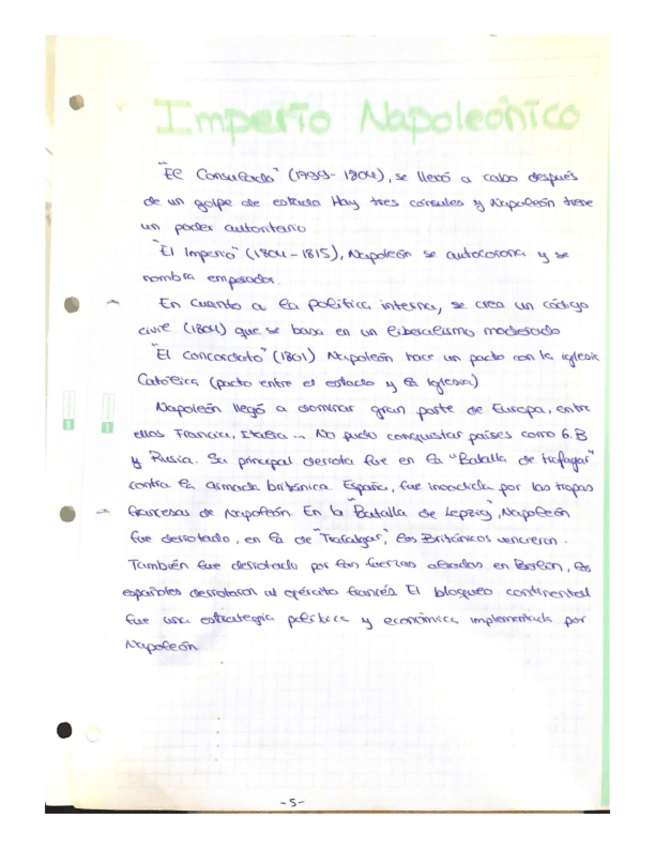 Imperio Napoleónico
"El Consulado" (1799-1804), se llevó a cabo después
de un golpe de estado Hay tres cónsules y Napoleón tiene
un poder autoritario
"El Imperio" (1804-1815), Napoleón se autocorona y se
nombra emperador.
En cuanto a la política interna, se crea un código
civil (1804) que se basa en un liberalismo moderado
"El Concordato" (1801) Napoleón hace un pacto con la iglesia
Católica (pacto entre el estado y la Iglesia)
Napoleón llegó a dominar gran parte de Europa, entre
ellos Francia, Italia ... No pudo conquistar países como G.B
y Rusia. Su principal derrota fue en la "Batalla de trafagar"
contra la armada británica. España, fue invadida por las tropas
francesas de Napoleón. En la "Batalla de Lepzig", Napoleón
fue derrotado, en la de "Trafalgar," los Británicos vencieron.
También fue derrotado por las fuerzas aliadas en Bailén, los
españoles derrotaron al ejército francés El bloqueo continental
fue una estrategia política y económica implementada por
Napoleón
-5-